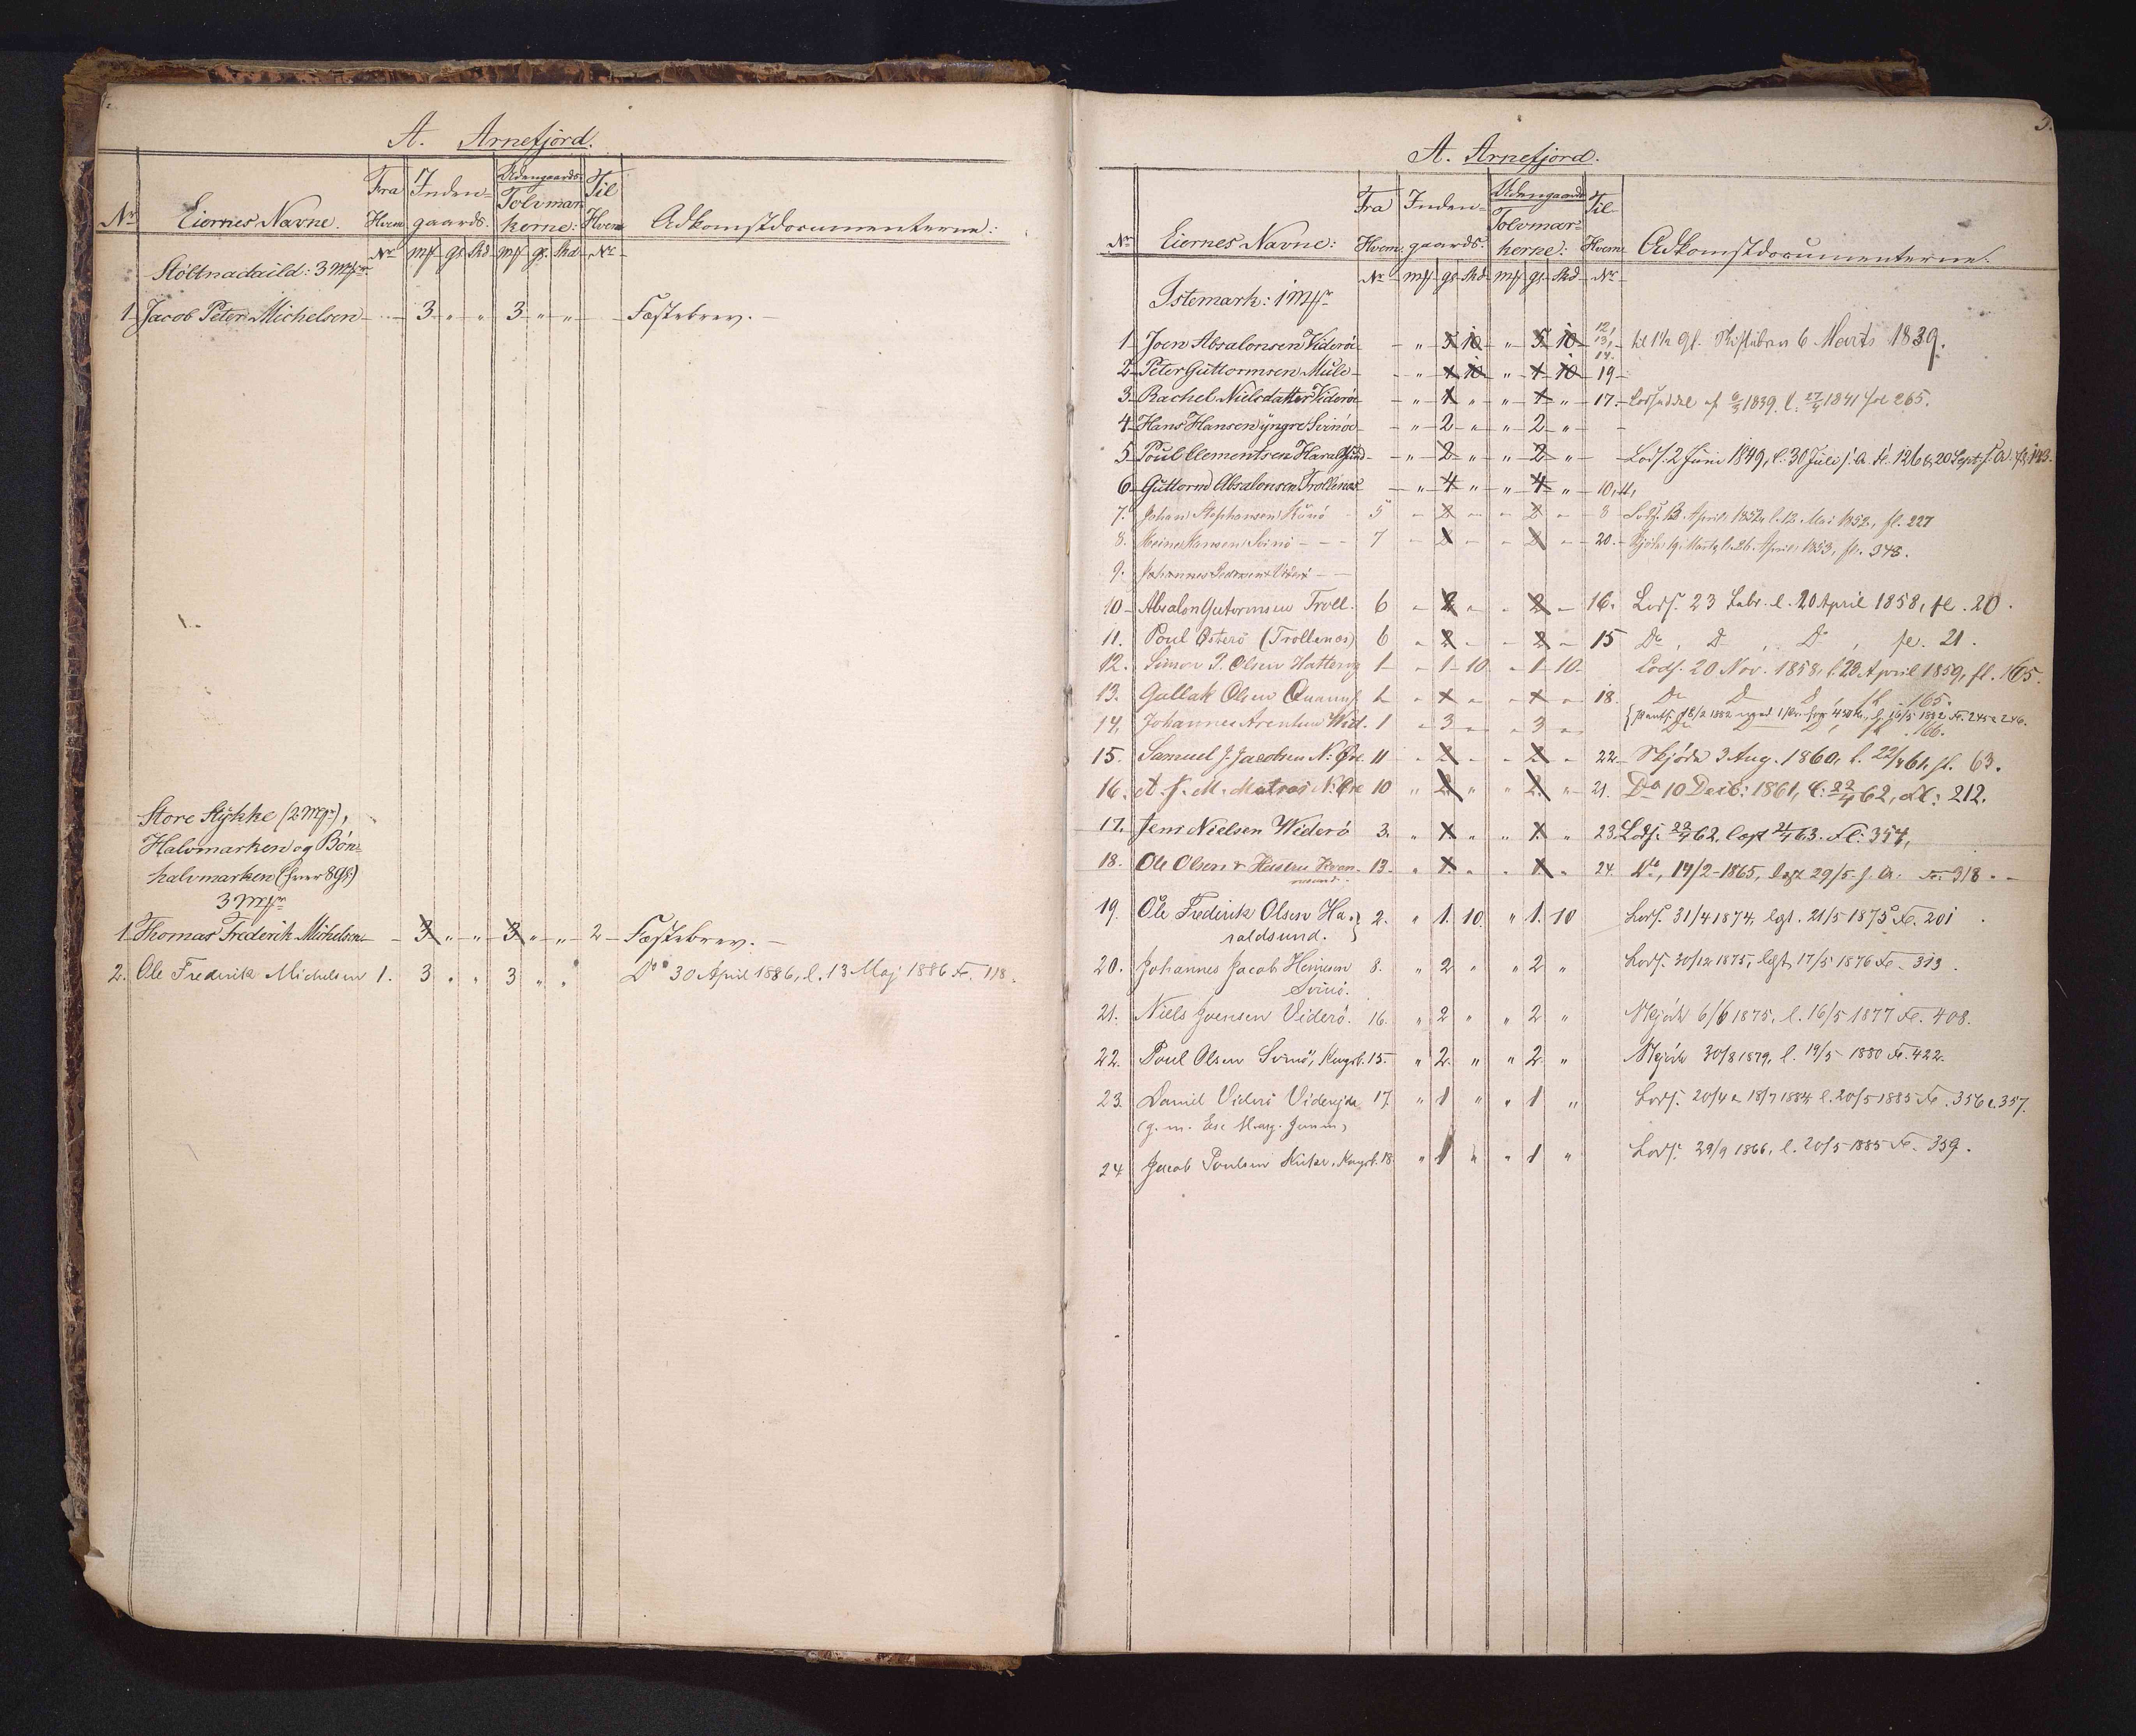 A. Arnefjord.
Nr Eiernes Navne. Fra Hvem Inden-gaards. Udengaards Tolvmarkerne: Til Hvem Adkomstdocumenterne:
Nr mk gs skd mk gs skd Nr
Stóltnadaild: 3 Mkr
1 Jacob Peter Michelsen 3 " " 3 " " Fæstebrev.
Store Stykke (2 Mkr),
Halvmarken og Bón-
halvmarken (hver 8 gs)
3 Mkr
1 Thomas Frederik Michelsen 3 " " 3 " " 2 Fæstebrev.
2. Ole Frederik Michelsen 1. 3 " " 3 " " Do 30 April 1886, l. 13 Maj 1886 Fo. 118.
3.
A. Arnefjord.
Nr Eiernes Navne: Fra Hvem Inden-gaards. Udengaards Tolvmar-kerne: Til Hvem Adkomstdocumenterne.
Nr mk gs skd mk gs skd Nr
Istemark: 1 Mkr
1 Joen Absalonsen Viderøe " 5 10 " 5 10 12, 13, 14. til 1½ Gl. 6 Marts 1839.
2 Peter Guttormsen Mule " 1 10 " 1 10 19
3 Rachel Nielsdatter Viderøe " 1 " " 1 " 17. 1839. l. 27/4 1841 fol 265.
4 Hans Hansen yngre Svinøe " 2 " " 2 "
5 Poul Clementsen Haraldsund " 2 " " 2 " Lods. 2 Juni 1849, l. 30 Juli s. A. fl. 126 & 20 Sept. s. A. fl. 143.
6 Guttorm Absalonsen Trollenæs " 4 " " 4 " 10, 11,
7. Johan Stephansen Kunø 5 2 2 8 Lods. 13 April 1852, l. 12 Mai 1852, fl. 227
8. Heine Hansen Svinø 7 2 2 20. Skjøde 19 Marts, l. 26 April 1853, fl. 343.
9. Johannes Pedersen Viderø
10 Absalon Guttormsen Troll. 6 2 2 16. Lods. 23 Febr. l. 20 April 1858, fl. 20.
11. Poul Østerø (Trollenæs) 6 2 2 15 Do, Do, Do, fl. 21.
12. Simon P. Olsen Hattervig 1 1 10 1 10 Lods. 20 Nov. 1858, l. 20 April 1859, fl. 165.
13. Gullak Olsen 1 1 1 18. Do Do Do, fl. 165.
{ Pantf. 18/2 1882 l. 16/5 1882 Fo. 245 & 246.
14. Johannes Arentsen Wid. 1 3 3 Do Do Do, fl. 166.
15. Samuel J. Jacobsen N. Øre 11 2 2 22 Skjöde 3 Aug. 1860, l. 22/4 61, fl. 63.
16. A. J. M. Matras N. Øre 10 2 " " 2 " 21. Do 10 Decb: 1861, l: 22/4 62, Fl: 212.
17. Jens Nielsen Widerö 3. " 1 " " 1 " 23. Lods. 22/4 62. læst 21/4 63. Fl: 354,
18. Ole Olsen & Hustru Kvan-nesund. 13. " 1 " " 1 " 24. Do, 14/2-1865, læst 29/5 s. A. Fo. 318.
19. Ole Frederik Olsen Ha-raldsund. } 2. " 1. 10. " 1. 10 Lods. 31/4 1874, lgst. 21/5 1875 Fo. 201
20. Johannes Jacob Heinesen Svinö. 8. " 2 " " 2 " Lods. 30/12 1875, lgst, 17/5 1876 Fo. 313.
21. Niels Joensen Viderö. 16. " 2 " " 2 " Skjöde 6/6 1875, l. 16/5 1877 Fo. 408.
22. Poul Olsen Svinö, Kngsb. 15. " 2. " " 2 " Skjöde 30/8 1879, l. 19/5 1880 Fo. 422.
23. Daniel Viderö Viderejde 17. " 1 " " 1 " Lods. 20/4 & 18/7 1884 l. 20/5 1885 Fo. 356 & 357.
(g. m. Marg. )
24 Jacob Poulsen , Kngsb. 18. " 1 " " 1 " Lods. 29/9 1866, l. 20/5 1885 Fo. 359.